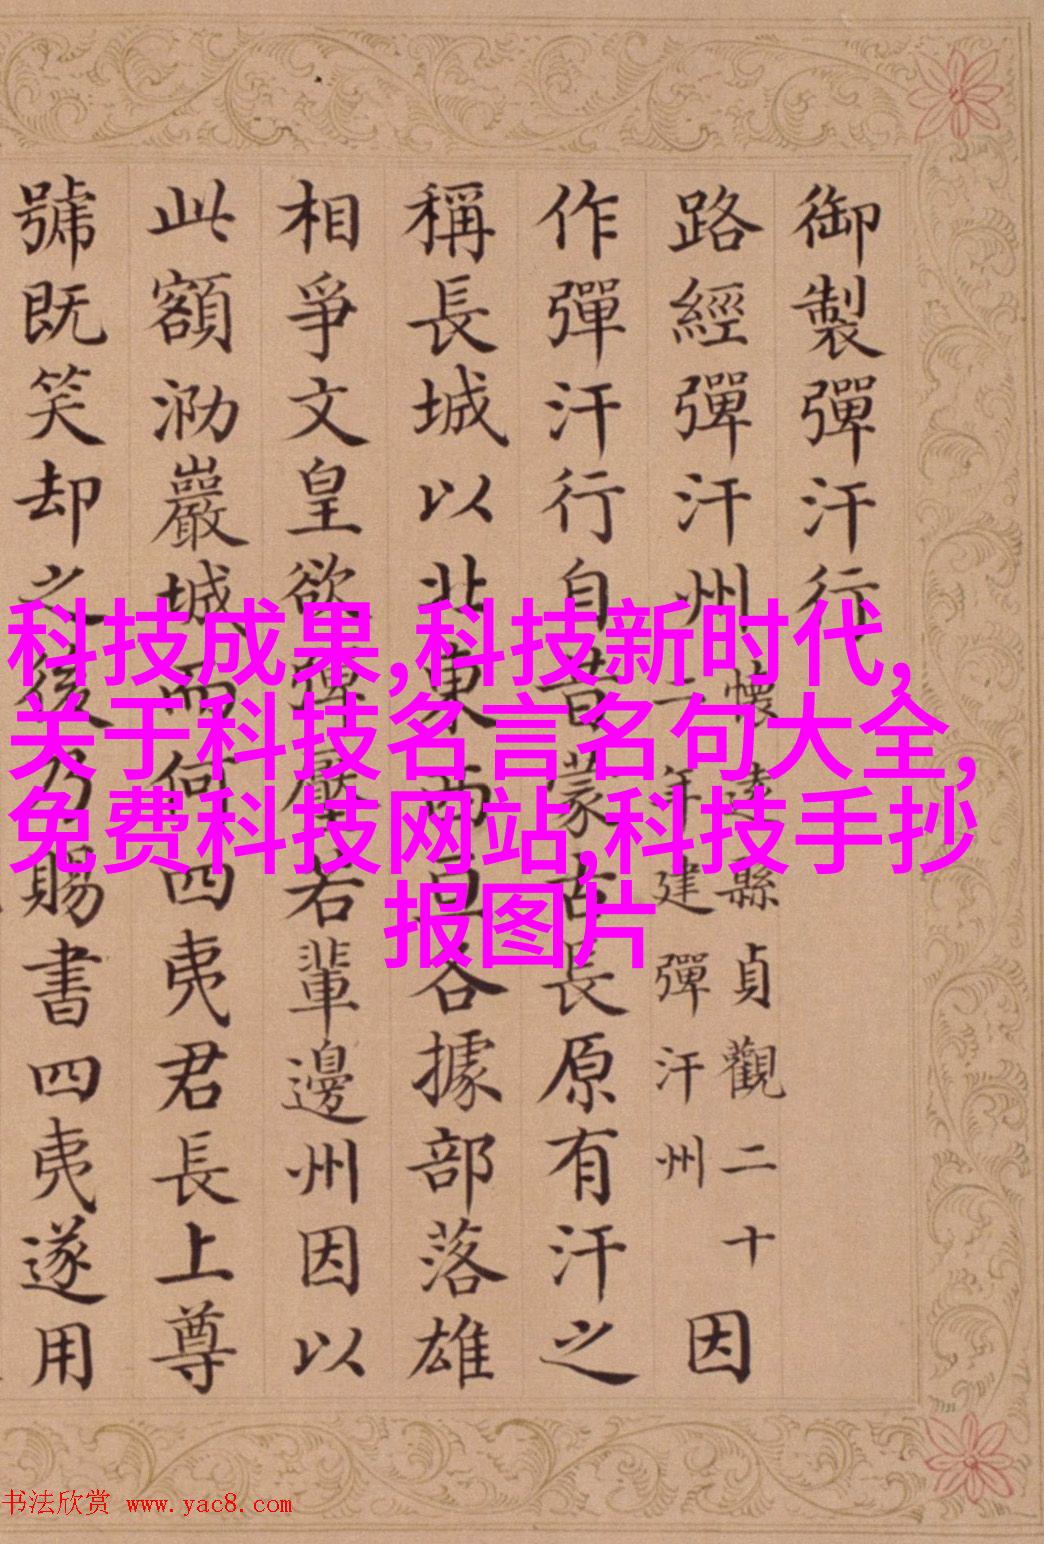 御製彈汗行
路經彈汗州
懷遠縣貞觀二十
二年建彈汗州
因
作彈汗行自昔蒙古長原有汗之
稱長城以北東各據部落雄
相爭文皇欲彈壓右輩邊州因以
此額泐巖城而何四夷君長上尊
號既笑却之後乃賜書四夷遂用
科技成果,科技新时代,
关于科技名言名句大全,
免费科技网站,科技手抄
报图片
书法欣赏 www.yac8.com